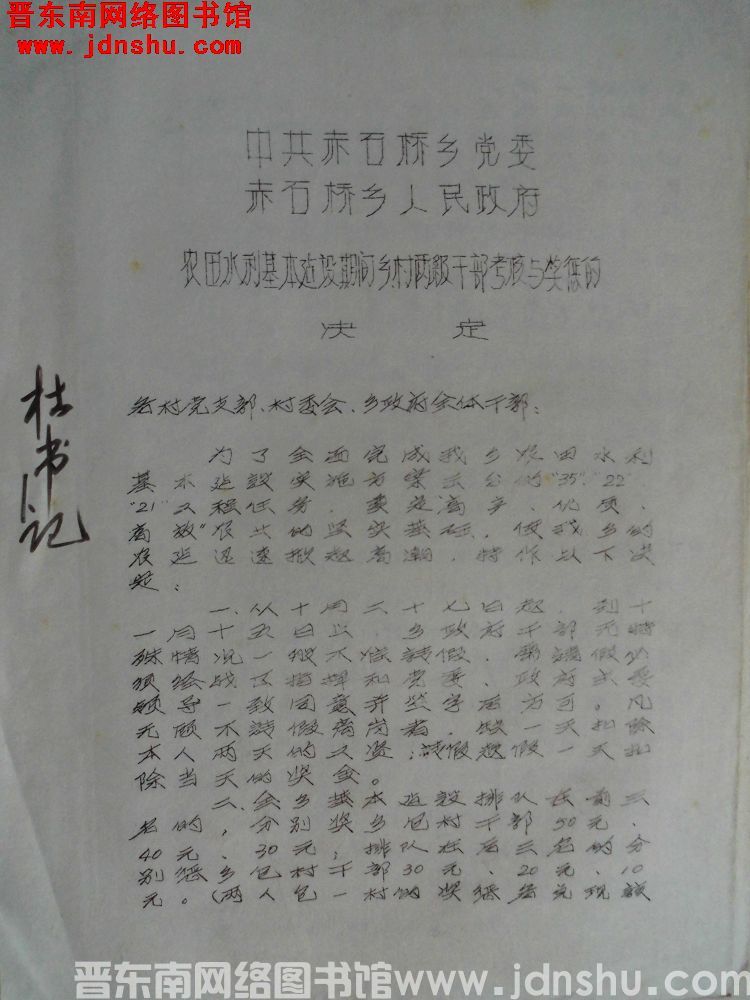 晋东南网络图书馆
www.jdnshu.com
中共赤石桥乡党委
赤石桥乡人民政府
农田水利基本建设期间乡村两级干部考核与奖惩的
决定
杜书记
各村党支部、村委会、乡政府全体干部：
为了全面完成我乡农田水利
基本建設实施方案三公的"35""22"
"21"工程任务，奠定"高产、优质、
高效"农业的坚实基础，使我乡的
农建迅速掀起高潮，特作以下决
定：
一、从十月二十七日起，到十
一月十五日止，乡政府干部无特
殊情况一般不准請假，需請假必
须经战区指挥和党委、政府主要
领导一致同意并签字后方可。凡
无顾不請假离岗者，缺一天扣除
本人两天的工资；請假超假一天扣
除当天的奖金。
二、全乡基本建設排队在前三
名的，分别奖乡包村干部50元、
40元、30元；排队在后三名的分
别惩乡包村干部30元、20元、10
元。(两人包一村的奖惩各兑现該
晋东南网络图书馆www.jdnshu.com